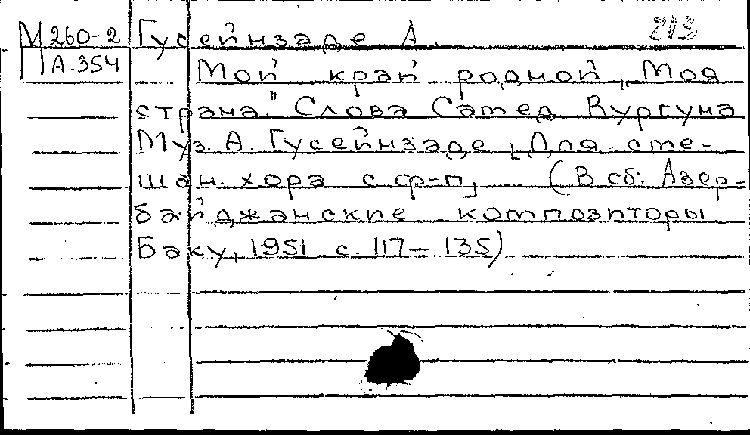 М 260-2 Гусейнзаде А. 213
А.354 Мой край родной, Моя
страна" Слова Самед Вургуна
Муз А. Гусейнзаде, Для сме-
шан. хора с ф-п, (В сб: Азер-
байджанские композиторы
Баку, 1951 с. 117-135)